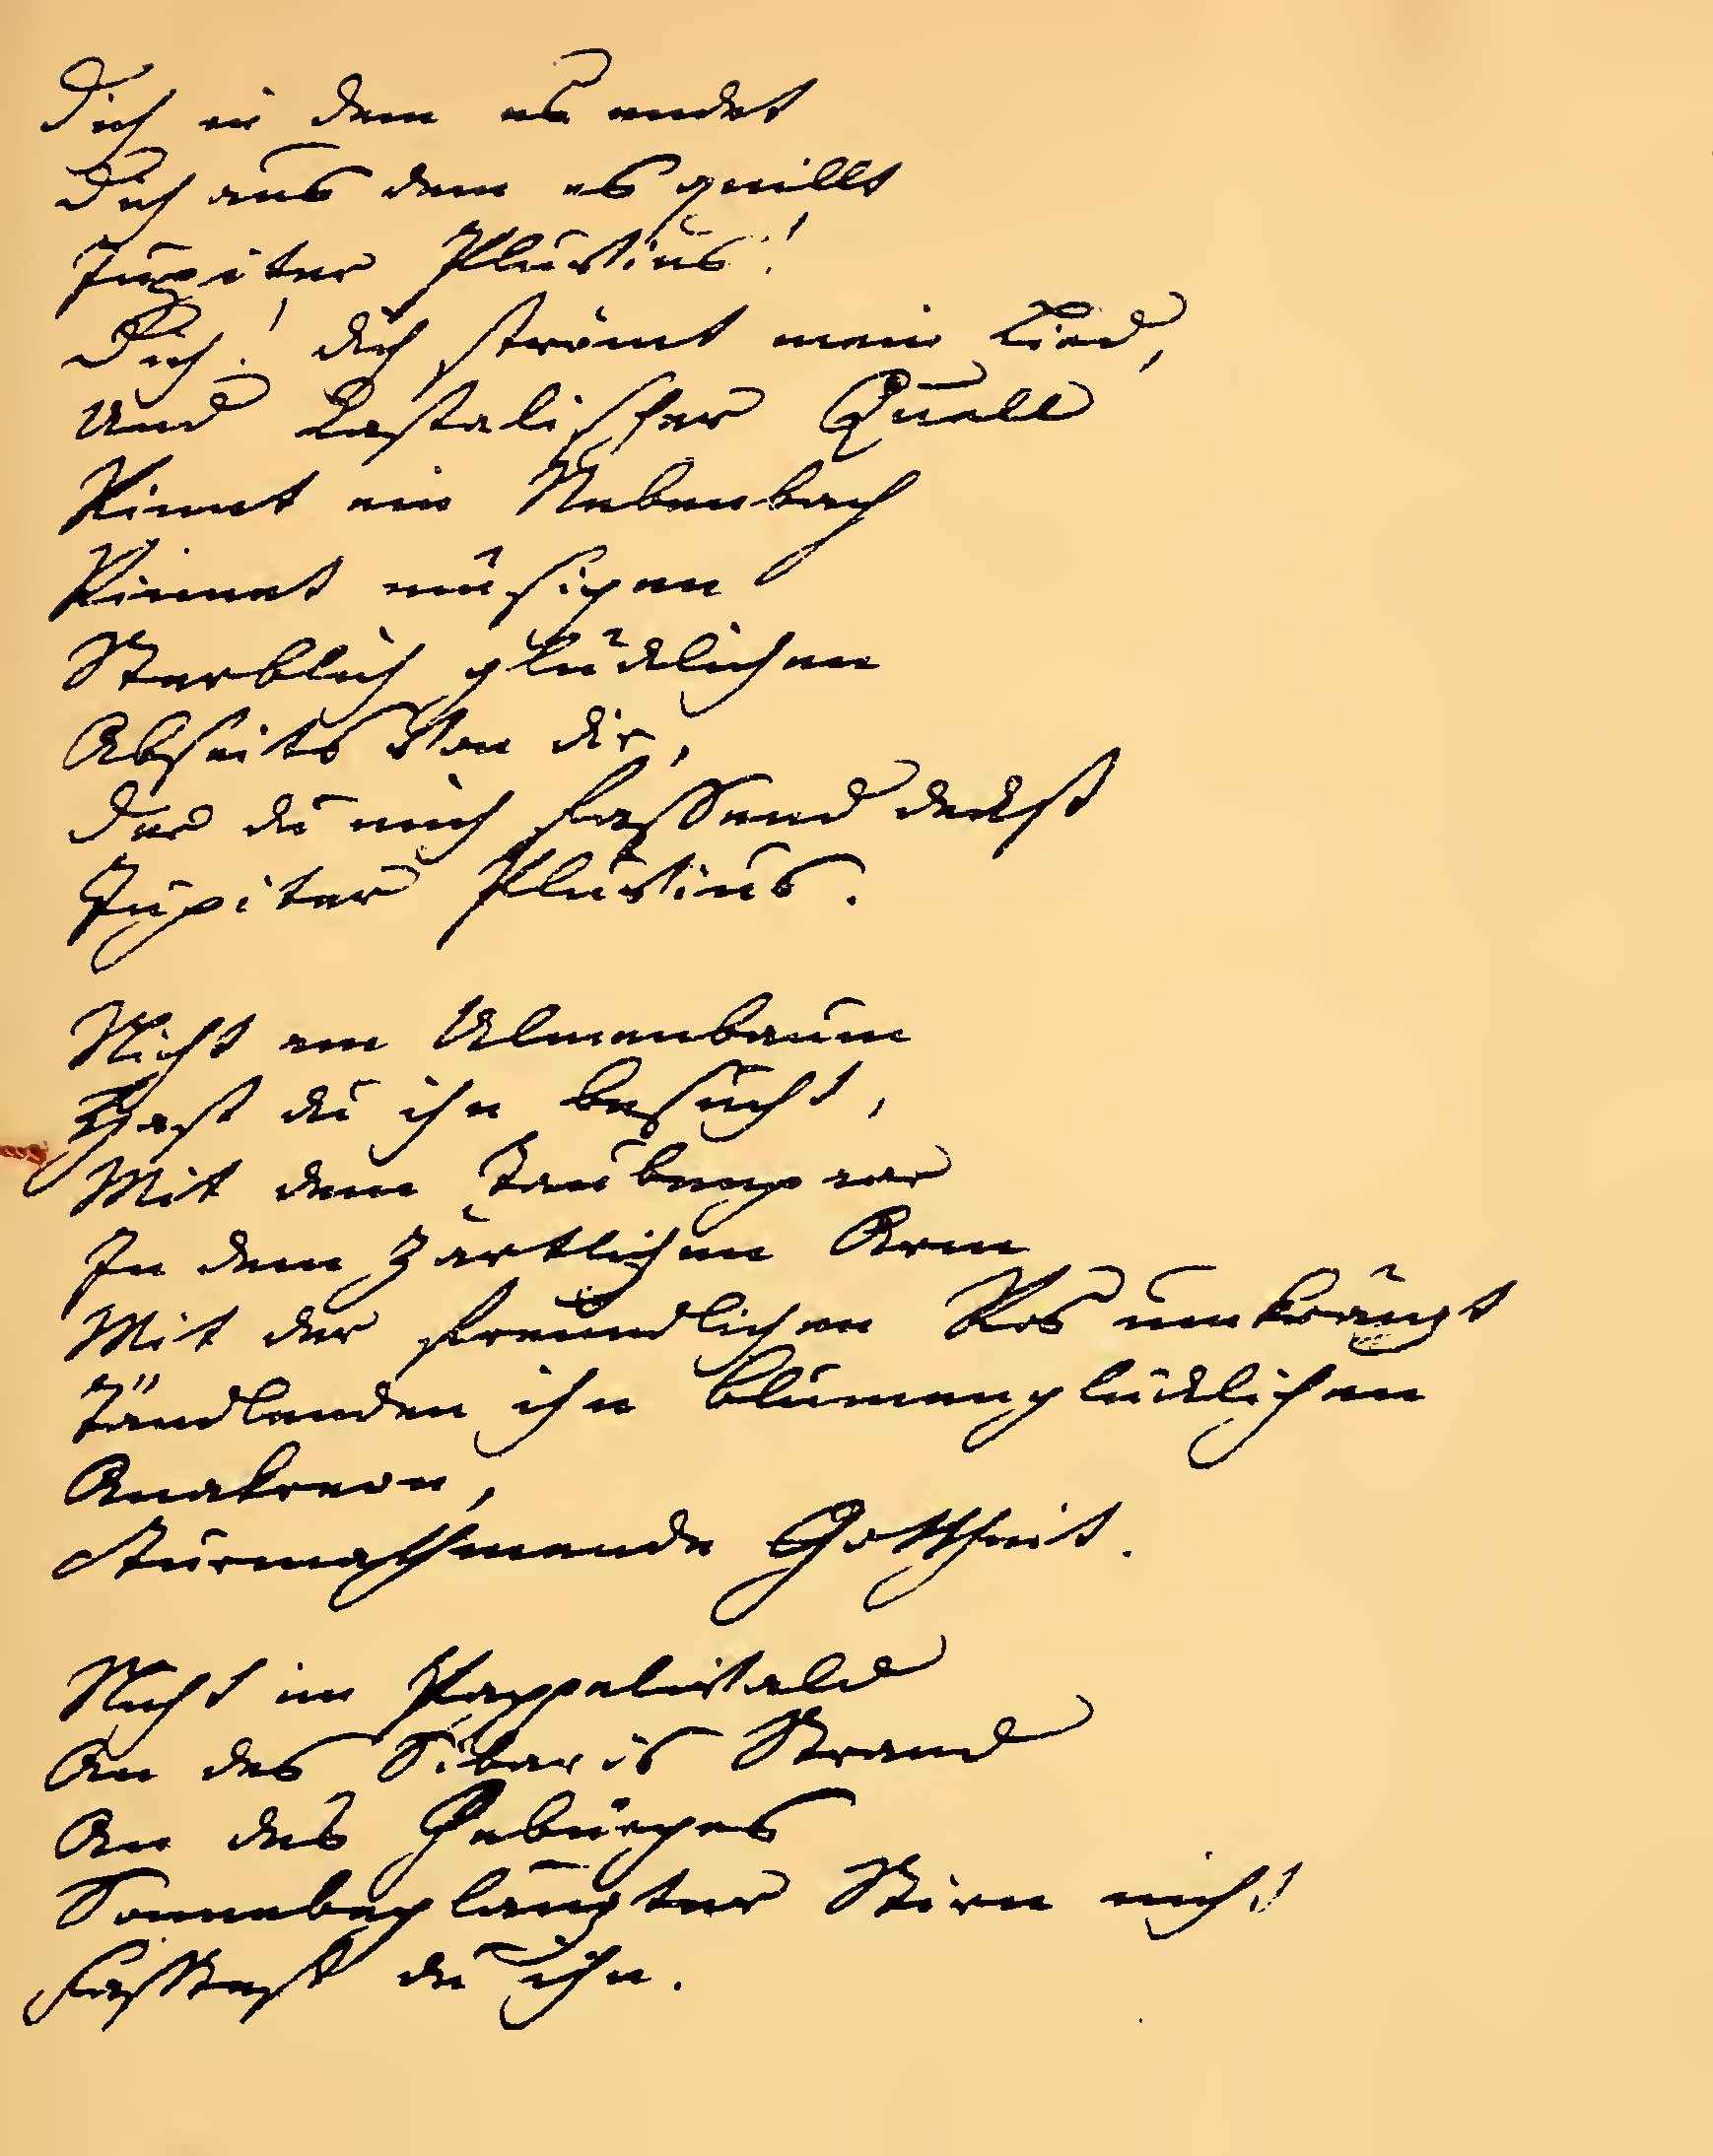 Dich in dem es endet
Dich aus dem es quillt
Jupiter Pluvius!
Dich! dich strömt mein Lied,
Und Castalischer Quell
Rinnt ein Nebenbach
Rinnet müsigen
Sterblich glücklichen
Abseits von dir,
Der du mich fassend deckst
Jupiter Pluvius.
Nicht am Ulmenbaum
Hast du ihn besucht,
Mit dem Taubenpaar
In dem zärtlichen Arm
Mit der freundlichen Ros umkränzt
Tändlenden ihn blumenglücklichen
Anakreon,
Sturmathmende Gottheit.
Nicht im Pappelwald
An des Sibaris Strand
An des Gebürges
Sonnebeglänzter Stirn nicht
Fasstest du ihn.